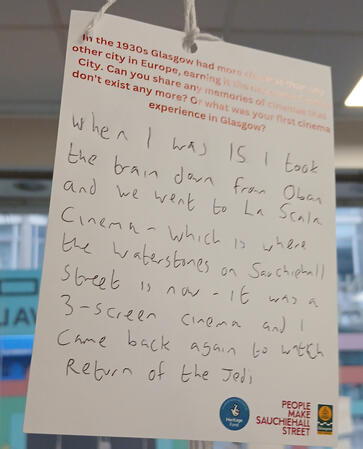 In the 1930s Glasgow had more
other city in Europe, earning it
City. Can you share any memories of cinemas that
don't exist any more? Or what was your first cinema
experience in Glasgow?
When I was 15 I took
the train down from Oban
and we went to La Scala
Cinema - which is where
the Waterstones on Sauchiehall
Street is now - it was a
3-screen cinema and I
came back again to watch
Return of the Jedi
Heritage
Fund
PEOPLE
MAKE
SAUCHIEHALL
STREET